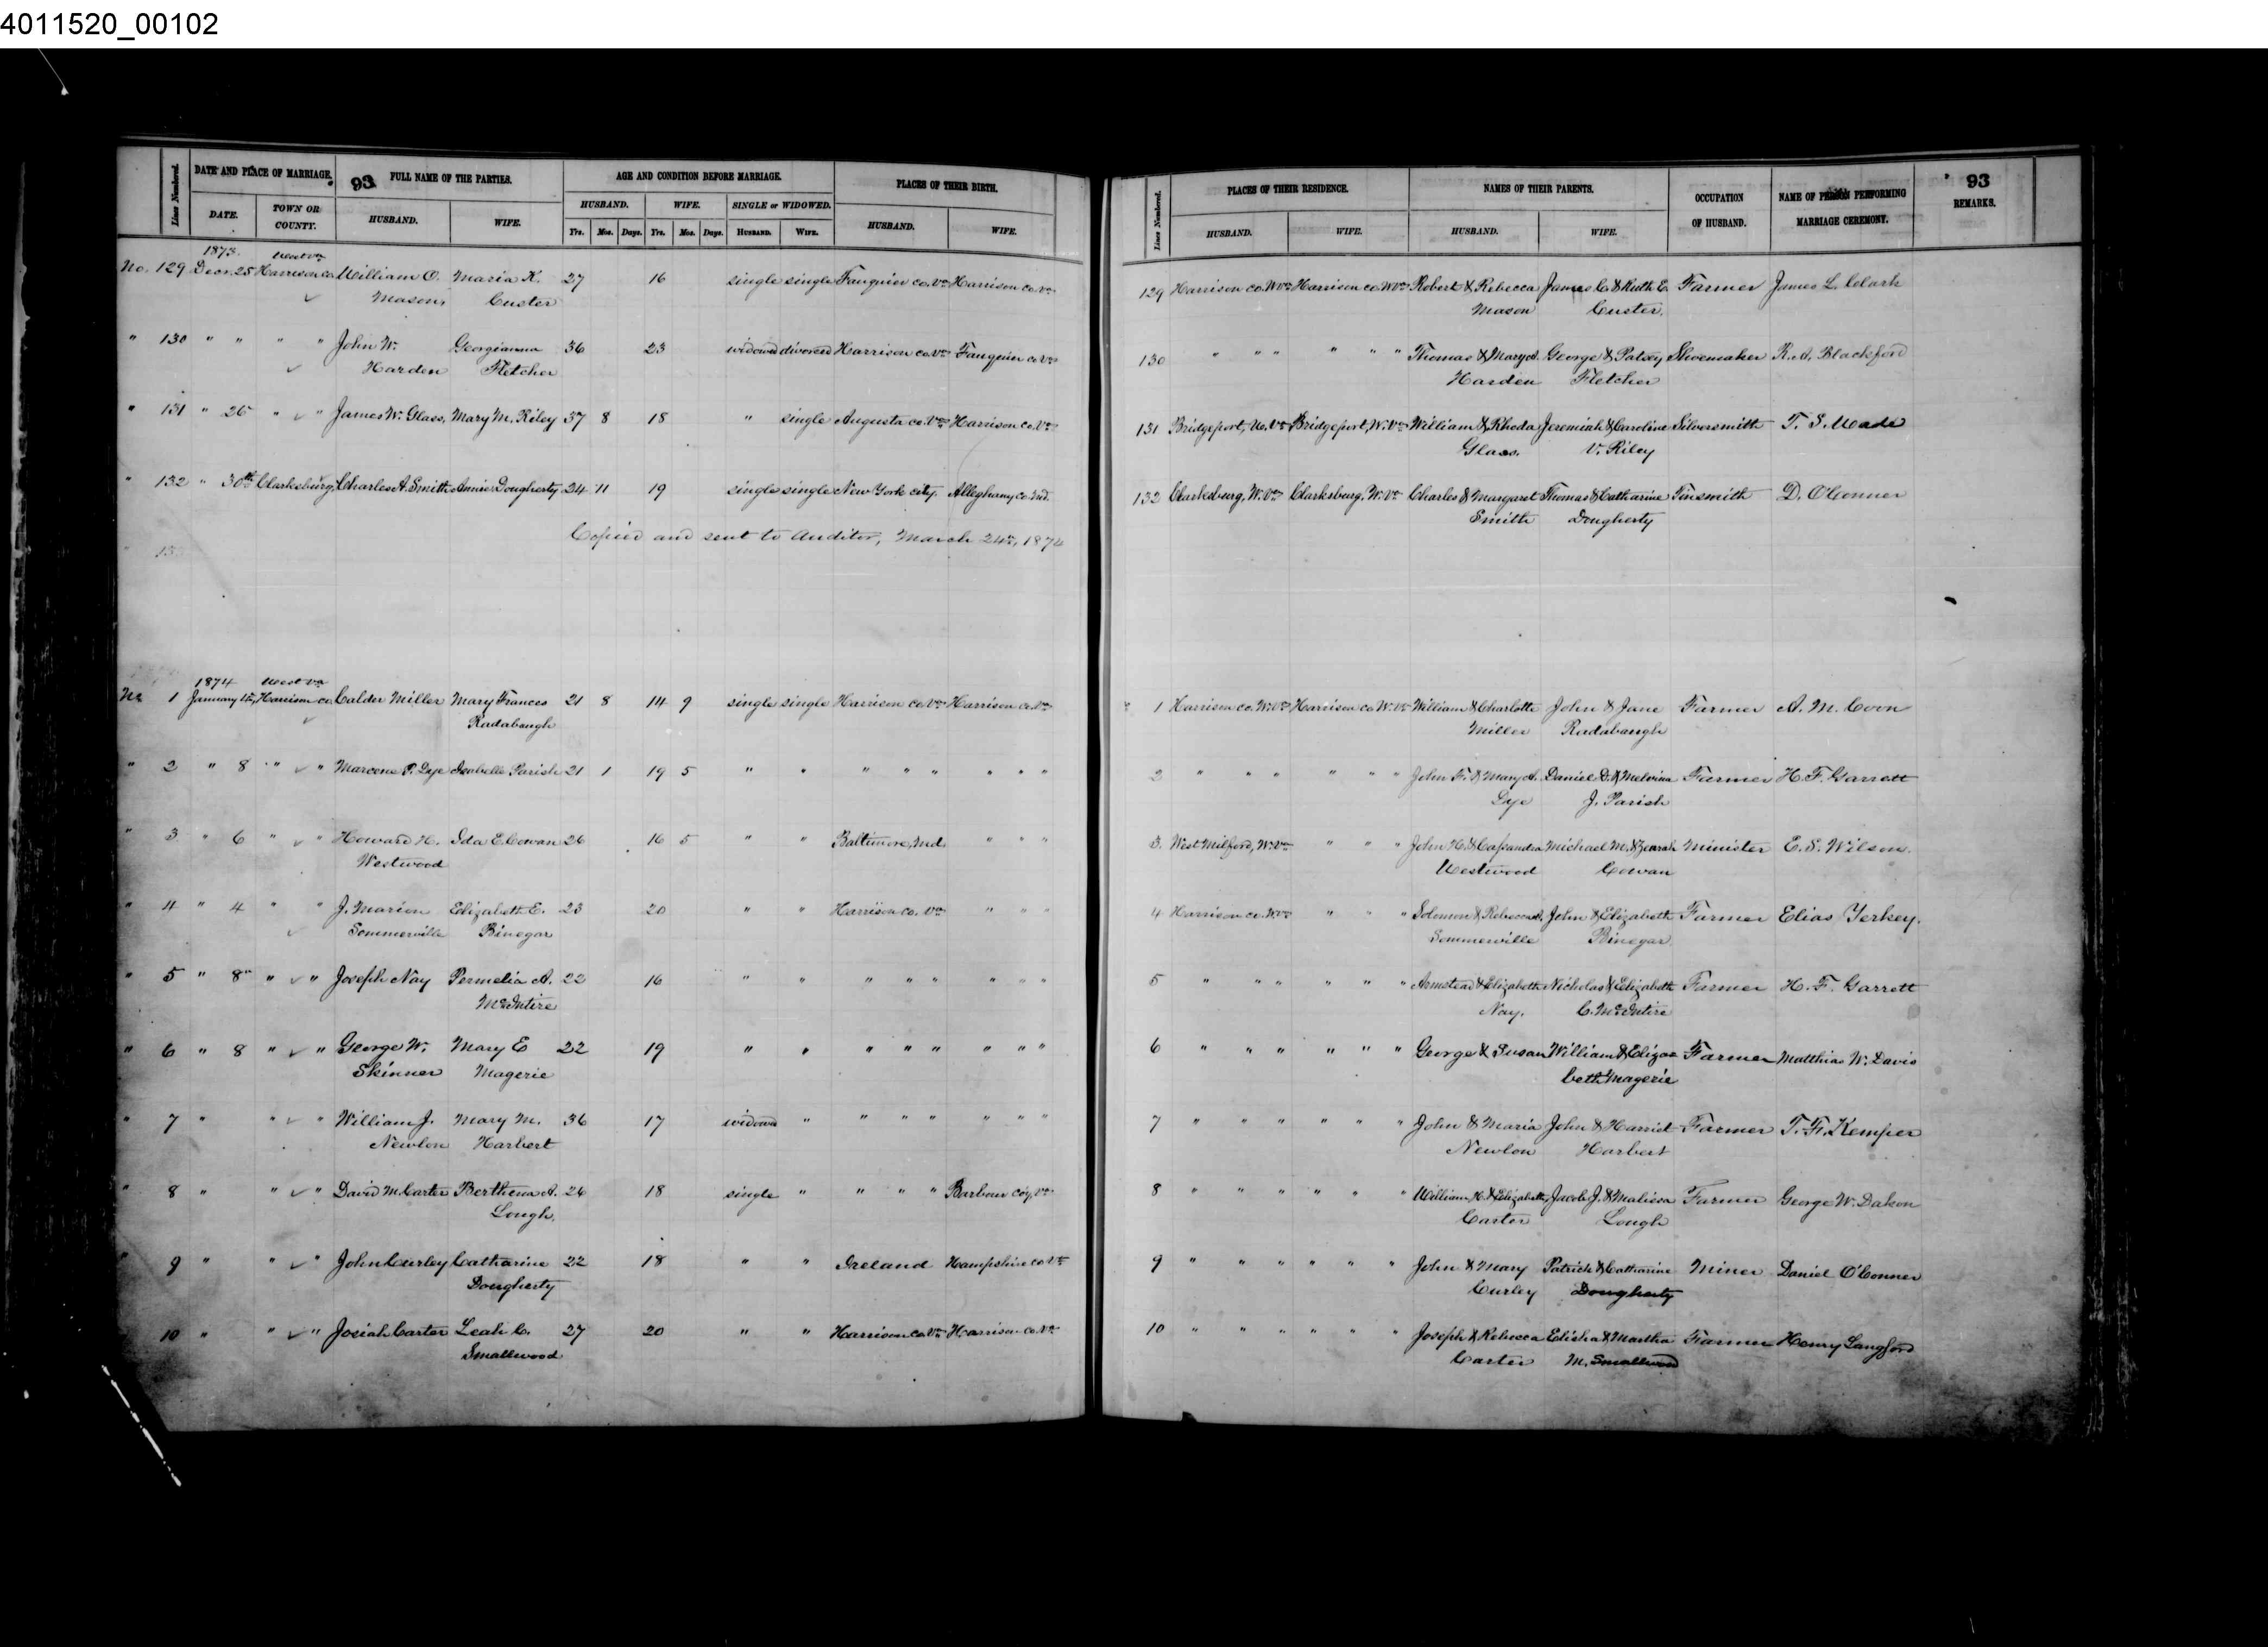 4011520_00102
Lines Numbered. DATE AND PLACE OF MARRIAGE. 93 FULL NAME OF THE PARTIES. AGE AND CONDITION BEFORE MARRIAGE. PLACES OF THEIR BIRTH.
DATE. TOWN OR COUNTY. HUSBAND. WIFE. HUSBAND. WIFE. SINGLE or WIDOWED. HUSBAND. WIFE.
Yrs. Mos. Days. Yrs. Mos. Days. HUSBAND. WIFE.
1873. West Va
No. 129 Decr. 25 Harrison co. William O. Maria K. 27 16 single single Fauquier co. Va Harrison co. Va
Mason, Custer
" 130 " " " " John W. Georgianna 36 23 widowed divorced Harrison co. Va Fauquier co. Va
Harden Fletcher
" 131 " 25 " " James W. Glass, Mary M. Riley 37 8 18 " single Augusta co. Va Harrison co. Va
" 132 " 30th Clarksburg, Charles A. Smith Annie Dougherty 24 11 19 single single New York city. Alleghany co. Md.
Copied and sent to Auditor, March 24th, 1874
" 133
1874 West Va
No 1 January 1st, Harrison co. Calder Miller Mary Frances 21 8 14 9 single single Harrison co. Va Harrison co. Va
Radabaugh
" 2 " 8 " " Marcene P. Dye Isabelle Parish 21 1 19 5 " " " " " " " "
" 3 " 6 " " Howard H. Ida E. Cowan 26 16 5 " " Baltimore, Md. " " "
Westwood
" 4 " 4 " " J. Marion Elizabeth E. 23 20 " " Harrison co. Va " " "
Sommerville Binegar
" 5 " 8" " " Joseph Nay Permelia A. 22 16 " " " " " " " "
McIntire
" 6 " 8 " " George W. Mary E 22 19 " " " " " " " "
Skinner Magerie
" 7 " " " William J. Mary M. 36 17 widowed " " " " " " "
Newlon Harbert
" 8 " " " David M. Carter Berthena A. 24 18 single " " " " Barbour co, Va
Lough,
" 9 " " " John Curley Catharine 22 18 " " Ireland Hampshire co Va
Dougherty
10 " " " Josiah Carter Leah C. 27 20 " " Harrison co. Va Harrison co. Va
Smallwood
Lines Numbered. PLACES OF THEIR RESIDENCE. NAMES OF THEIR PARENTS. OCCUPATION OF HUSBAND. NAME OF PERSON PERFORMING MARRIAGE CEREMONY. 93 REMARKS.
HUSBAND. WIFE. HUSBAND. WIFE.
129 Harrison co. W Va Harrison co. W Va Robert & Rebecca James C. & Ruth E. Farmer James L. Clark
Mason Custer.
130 " " " " " " Thomas & Mary A. George & Patsy Shoemaker R. A. Blackford
Harden Fletcher
131 Bridgeport, W. Va Bridgeport, W. Va William & Rhoda Jeremiah & Caroline Silversmith T. S. Wade
Glass. V. Riley
132 Clarksburg, W. Va Clarksburg, W. Va Charles & Margaret Thomas & Catharine Tinsmith D. O'Conner
Smith Dougherty
1 Harrison co. W. Va Harrison co W. Va William & Charlotte John & Jane Farmer A. M. Coon
Miller Radabaugh
2 " " " " " " John F. & Mary A. Daniel D. & Melvina Farmer H. F. Garrett
Dye J. Parish
3 West Milford, W. Va " " " John H. & Cassandra Michael M. & Farmer Minister E. S. Wilson.
Westwood Cowan
4 Harrison co. W Va " " " Solomon & Rebecca A. John & Elizabeth Farmer Elias Yerkey.
Sommerville Binegar
5 " " " " " " Armstead & Elizabeth Nicholas & Elizabeth Farmer H. F. Garrett
Nay. C. McIntire
6 " " " " " " George & Susan William & Eliza= Farmer Matthias W. Davis
beth Magerie
7 " " " " " " John & Maria John & Harriet Farmer T. F. Kemper
Newlon Harbert
8 " " " " " " William H. & Elizabeth, Jacob J. & Malissa Farmer George W. Dakon
Carter Lough
9 " " " " " " John & Mary Patrick & Catharine Miner Daniel O'Conner
Curley Dougherty
10 " " " " " " Joseph & Rebecca Elisha & Martha Farmer Henry Langford
Carter M. Smallwood